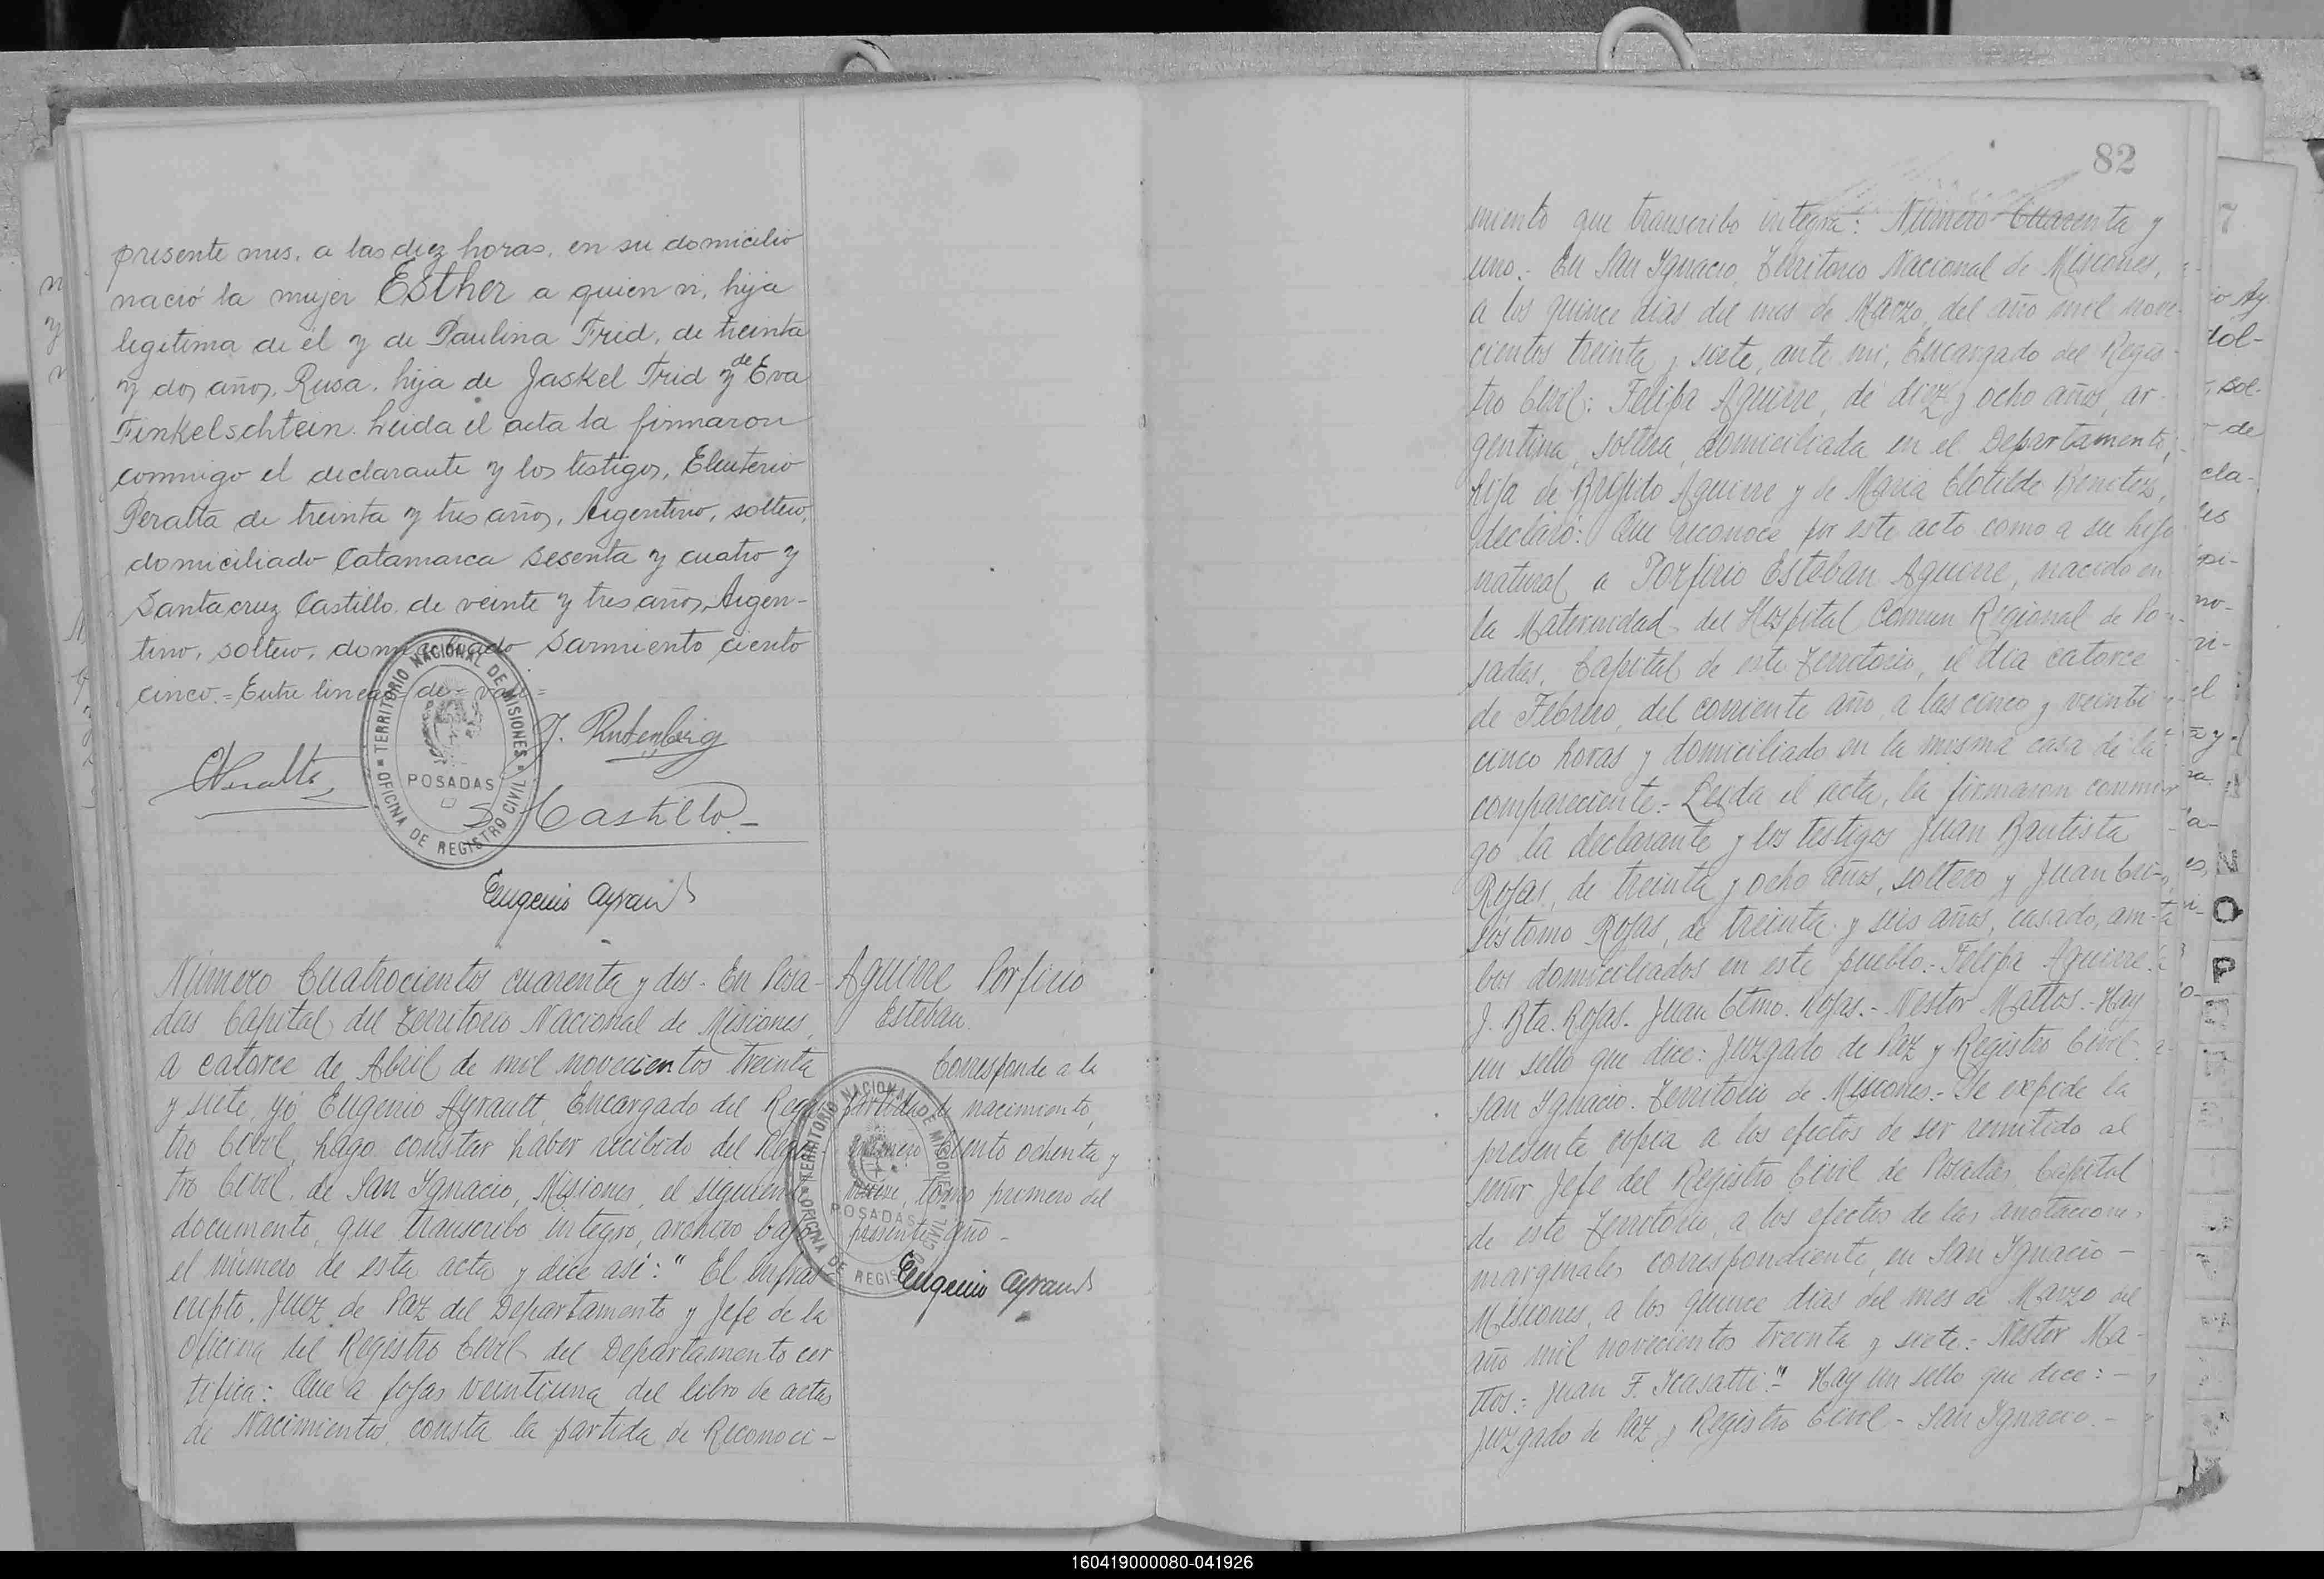 presente mes, a las diez horas, en su domicilio
nació la mujer Esther a quien vi, hija
legitima de él y de Paulina Frid, de treinta
y dos años, Rusa, hija de Jaskel Frid y de Eva
Finkelschtein. Leida el acta la firmaron
conmigo el declarante y los testigos, Eleuterio
Peralta de treinta y tres años, Argentino, soltero,
domiciliado Catamarca sesenta y cuatro y
Santacruz Castillo, de veinte y tres años, Argen-
tino, soltero, domiciliado Sarmiento ciento
cinco.= Entre lineas= de - vale=
J. Rutenberg
EPeralta
S. Castillo.-
TERRITORIO NACIONAL DE MISIONES
POSADAS
OFICINA DE REGISTRO CIVIL
Eugenio Ayrault
Número Cuatrocientos cuarenta y dos - En Posa-
das Capital del Territorio Nacional de Misiones,
a catorce de Abril de mil novecientos treinta
y siete, yo Eugenio Ayrault, Encargado del Regis-
tro Civil, hago constar haber recibido del Regis-
tro Civil, de San Ignacio, Misiones, el siguiente
documento, que transcribo integro, archivo bajo
el número de esta acta y dice así: " El Infras-
cripto, Juez de Paz del Departamento y Jefe de la
Oficina del Registro Civil del Departamento cer
tifica: Que a fojas veintiuna del libro de actas
de Nacimientos, consta la partida de Reconoci-
Aguirre Porfirio
Esteban.
Corresponde a la
partida de nacimiento,
número ciento ochenta y
nueve, tomo primero del
presente año -
TERRITORIO NACIONAL DE MISIONES
POSADAS
OFICINA DE REGISTRO CIVIL
Eugenio Ayrault
82
miento que transcribo integra: Número Cuarenta y
uno.- En San Ignacio, Territorio Nacional de Misiones,
a los quince dias del mes de Marzo, del año mil nove-
cientos treinta y siete, ante mi, Encargado del Regis-
tro Civil: Felipa Aguirre, de diez y ocho años, ar-
gentina, soltera, domiciliada en el Departamento,
hija de Brigido Aguirre y de Maria Clotilde Benitez,
declaró: Que reconoce por este acto como a su hijo
natural a Porfirio Esteban Aguirre, nacido en
la Maternidad del Hospital Comun Regional de Po-
sadas, Capital de este Territorio, el dia catorce
de Febrero, del corriente año, a las cinco y veinti
cinco horas y domiciliado en la misma casa de la
compareciente.- Leida el acta, la firmaron conmi-
go la declarante y los testigos Juan Bautista
Rojas, de treinta y ocho años, soltero y Juan Cri-
sóstomo Rojas, de treinta y seis años, casado, am-
bos domiciliados en este pueblo.- Felipa Aguirre.
J. Bta. Rojas. Juan Ctmo. Rojas.- Nestor Mattos.- Hay
un sello que dice: Juzgado de Paz y Registro Civil.
San Ignacio. Territorio de Misiones.- Se expide la
presente copia a los efectos de ser remitido al
señor Jefe del Registro Civil de Posadas, Capital
de este Territorio, a los efectos de las anotaciones
marginales correspondiente, en San Ignacio -
Misiones, a los quince dias del mes de Marzo del
año mil novecientos treinta y siete: Nestor Ma-
ttos: Juan F. Icasatti".- Hay un sello que dice: -
Juzgado de Paz y Registro Civil - San Ignacio. -
7
N
O
P
160419000080-041926